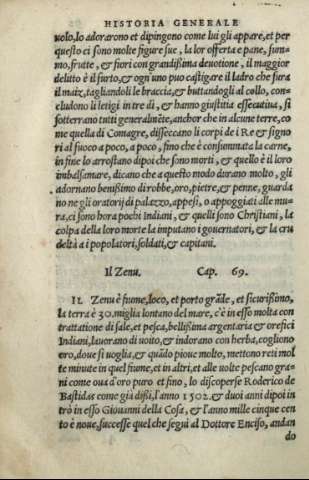 HISTORIA GENERALE
uolo, lo adorarono et dipingono come lui gli appare, et per
questo ci sono molte figure sue, la lor offerta e pane, fum-
mo, frutte, & fiori con grandissima deuotione, il maggior
delitto è il furto, & ogn'uno puo castigare il ladro che fura
il maiz, tagliandoli le braccia, & buttandogli al collo, con-
cludono li letigi in tre dì, & hanno giustitia essecutiua, si
sotterrano tutti generalmēte, anchor che in alcune terre, co
me quella di Comagre, disseccano li corpi de i Re & signo
ri al fuoco a poco, a poco, fino che è consummata la carne,
in fine lo arrostano dipoi che sono morti, & quello è il loro
imbalsamare, dicano che a questo modo durano molto, gli
adornano benissimo di robbe, oro, pietre, & penne, guarda
no ne gli oratorij di palazzo, appesi, o appoggiati alle mu-
ra, ci sono hora pochi Indiani, & quelli sono Christiani, la
colpa della loro morte la imputano i gouernatori, & la cru
deltà a i popolatori, soldati, & capitani.
Il Zenu. Cap. 69.
IL Zenu è fiume, loco, et porto grāde, et sicurissimo,
la terra è 30. miglia lontano del mare, c'è in esso molta con
trattatione di sale, et pesca, bellissima argentaria & orefici
Indiani, lauorano di uoito, & indorano con herba, cogliono
oro, doue si uoglia, & quādo pioue molto, mettono reti mol
te minute in quel fiume, et in altri, et alle uolte pescano gra-
ni come oua d'oro puro et fino, lo discoperse Roderico de
Bastidas come già dissi, l'anno 1502. & duoi anni dipoi in
trò in esso Giouanni della Cosa, & l'anno mille cinque cen
to è noue, successe quel che seguì al Dottore Enciso, andan
do